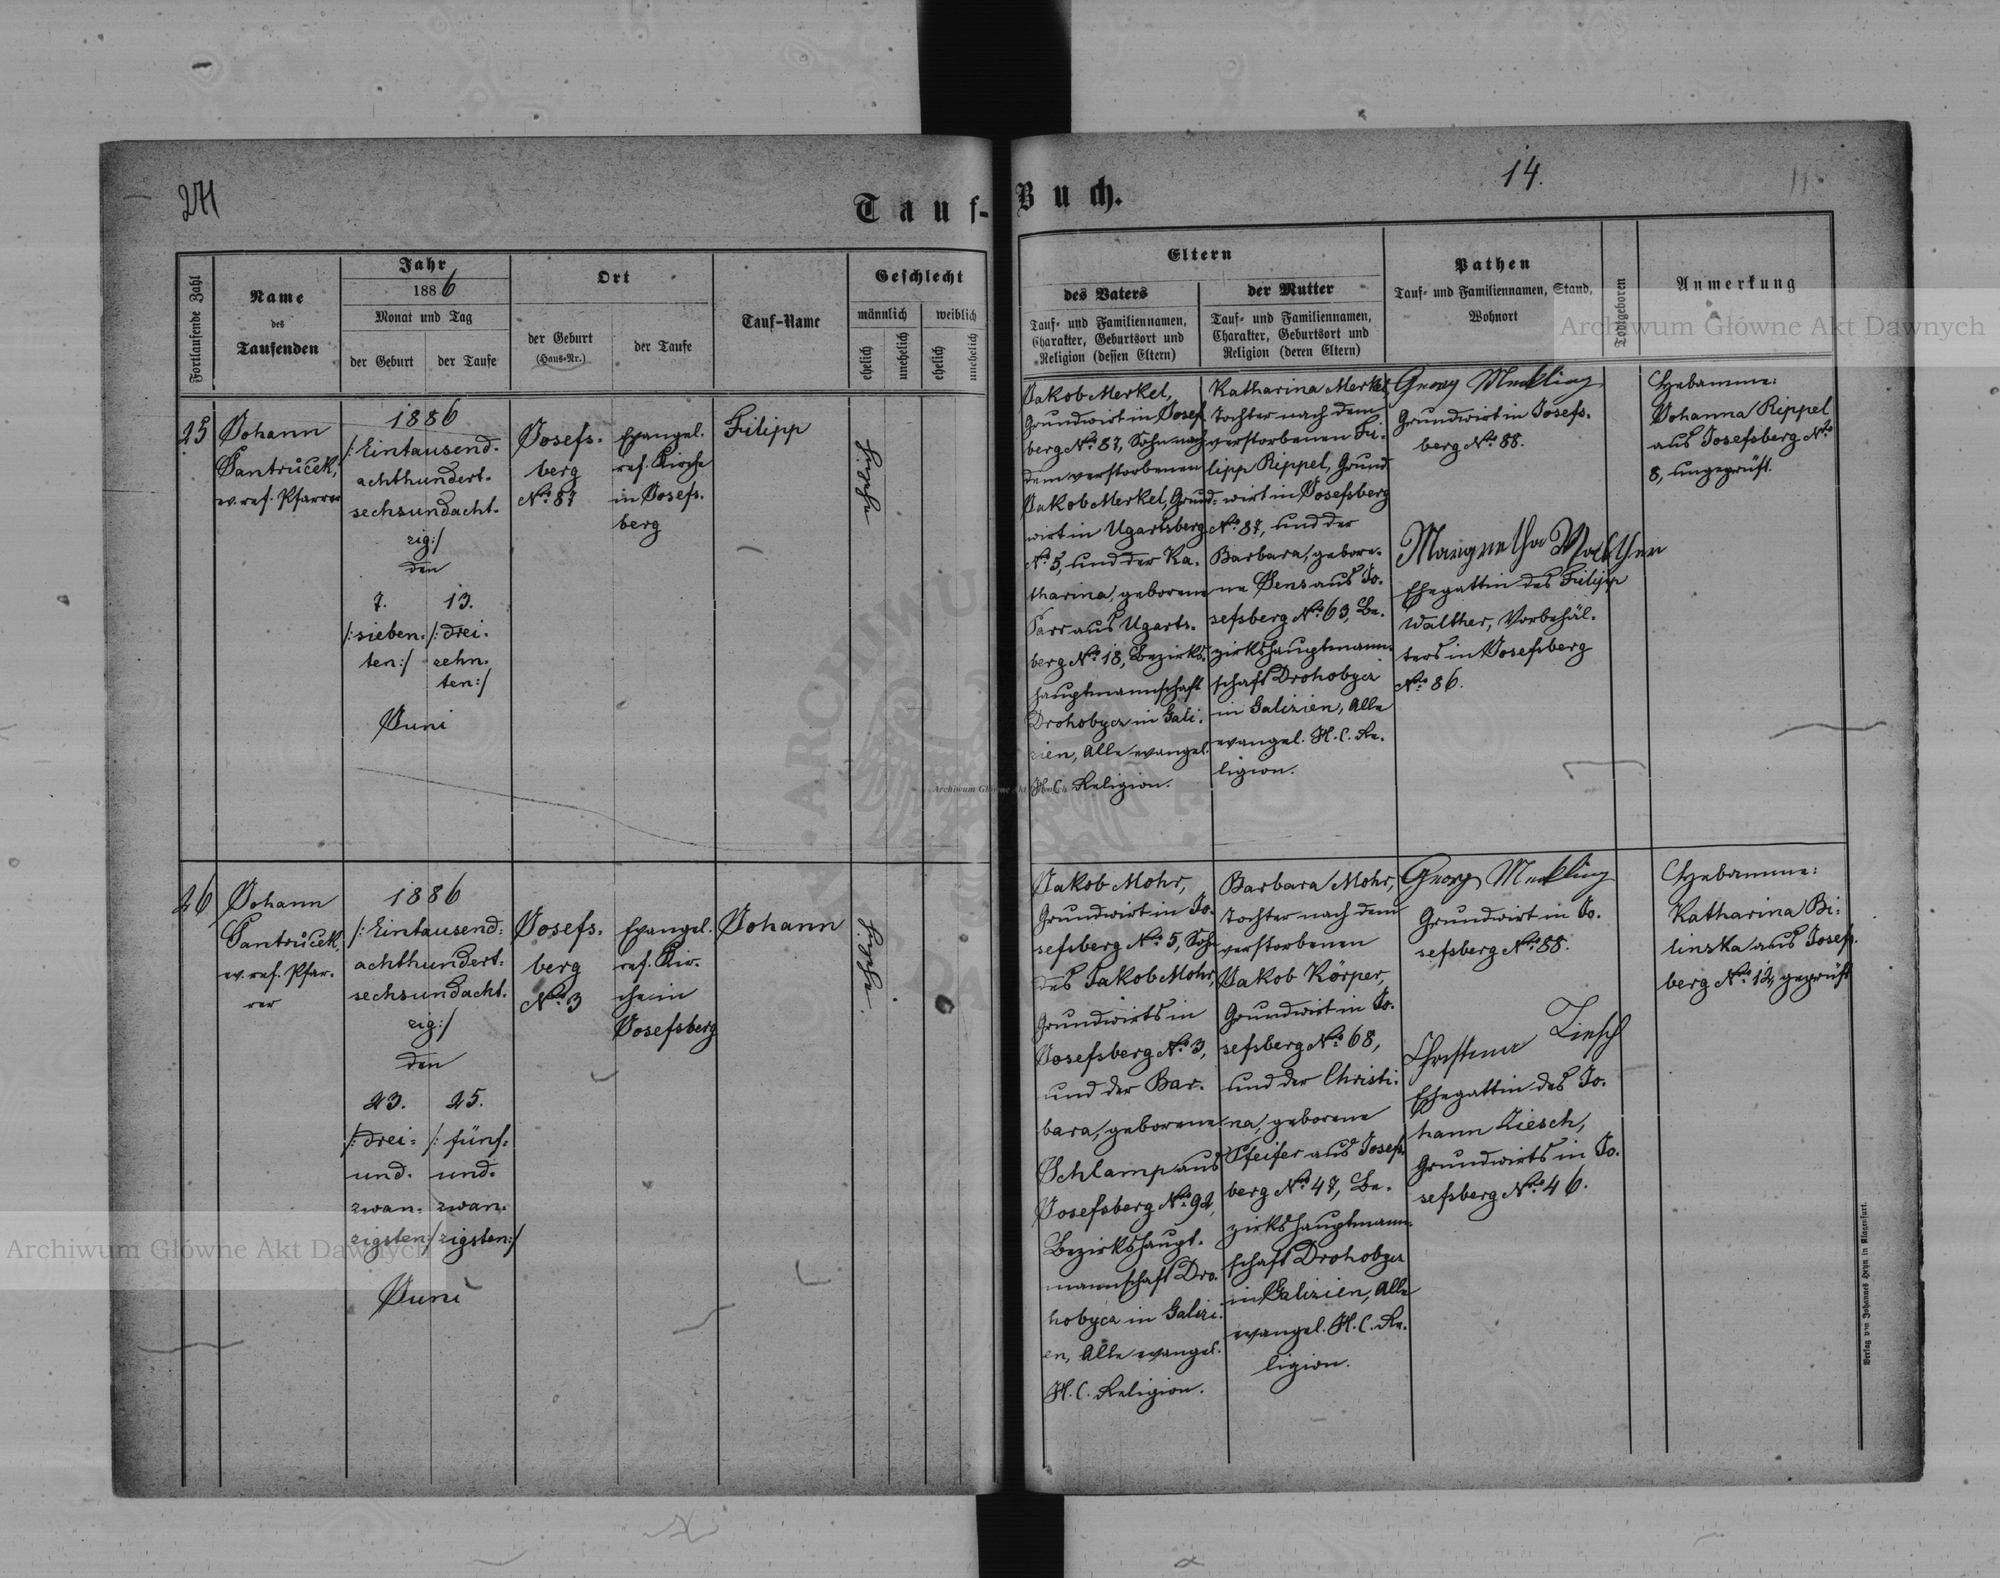 14.
Tauf-Buch.
Fortlaufende Zahl
Name
des
Taufenden
Jahr
1886
Monat und Tag
der Geburt
der Taufe
Ort
der Geburt
(Haus-Nr.)
der Taufe
Tauf-Name
Geschlecht
männlich
weiblich
ehelich
unehelich
ehelich
unehelich
Eltern
des Vaters
Tauf- und Familiennamen,
Charakter, Geburtsort und
Religion (dessen Eltern)
der Mutter
Tauf- und Familiennamen,
Charakter, Geburtsort und
Religion (deren Eltern)
Pathen
Tauf- und Familiennamen, Stand,
Wohnort
Todtgeboren
Anmerkung
25
Johann
Jantrůček,
ev. ref. Pfarrer
1886
/: Eintausend-
achthundert-
sechsundacht-
zig :/
den
7.
/: sieben-
ten :/
13.
/: drei-
zehn-
ten :/
Juni
Josefs-
berg
No. 87
Evangel.
ref. Kirche
in Josefs-
berg
Filipp
Jakob Merkel,
Grundwirt in Josef
berg No. 87, Sohn nach
dem verstorbenen
Jakob Merkel, Grund-
wirt in Ugartsberg
No. 5, und der Ka-
tharina, geborene
Parr aus Ugarts-
berg No. 18, Bezirks-
hauptmannschaft
Drohobycz in Gali-
zien, Alle evangel.
H. C. Religion.
Katharina Merkel
Tochter nach dem
verstorbenen Fi-
lipp Rippel, Grund
wirt in Josefsberg
No. 87, und der
Barbara, gebore-
ne Jens aus Jo-
sefsberg No. 63, Be-
zirkshauptmann-
schaft Drohobycz
in Galizien, Alle
evangel. H. C. Re-
ligion.
Georg Meckling
Grundwirt in Josefs-
berg No. 88.
Margretha Walther
Ehegattin des Filipp
Walther, Vorbehäl-
ters in Josefsberg
No. 86.
Hebamme:
Johanna Rippel
aus Josefsberg No.
8, ungeprüft.
26
Johann
Jantrůček,
ev. ref. Pfar-
rer
1886
/: Eintausend-
achthundert-
sechsundacht-
zig :/
den
23.
/: drei-
und-
zwan-
zigsten :/
25.
/: fünf-
und-
zwan-
zigsten :/
Juni
Josefs-
berg
No. 3
Evangel.
ref. Kir-
che in
Josefsberg
Johann
Jakob Mohr,
Grundwirt in Jo-
sefsberg No. 5, Sohn
des Jakob Mohr,
Grundwirts in
Josefsberg No. 3,
und der Bar-
bara, geborene
Schlamp aus
Josefsberg No. 92,
Bezirkshaupt-
mannschaft Dro-
hobycz in Galizi-
en, Alle evangel.
H. C. Religion.
Barbara Mohr,
Tochter nach dem
verstorbenen
Jakob Körper,
Grundwirt in Jo-
sefsberg No. 68,
und der Christi-
na, geborene
Pfeifer aus Josefs-
berg No. 47, Be-
zirkshauptmann-
schaft Drohobycz
in Galizien, Alle
evangel. H. C. Re-
ligion.
Georg Meckling
Grundwirt in Jo-
sefsberg No. 88.
Christina Ziesch
Ehegattin des Jo-
hann Ziesch,
Grundwirts in Jo-
sefsberg No. 46.
Hebamme:
Katharina Bi-
linska aus Josefs-
berg No. 12, geprüft
Verlag von Johannes Heyn in Klagenfurt.
Archiwum Główne Akt Dawnych
Archiwum Główne Akt Dawnych
Archiwum Główne Akt Dawnych